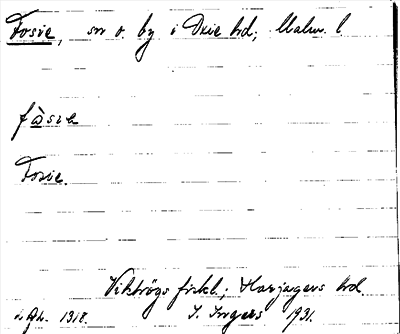 Fosie, sn o. by i Oxie hd; Malm. l
fòsıe
Fosie.
Vikhögs fiskl.; Harjagers hd
Acc. 1318. I. Ingers 1931.